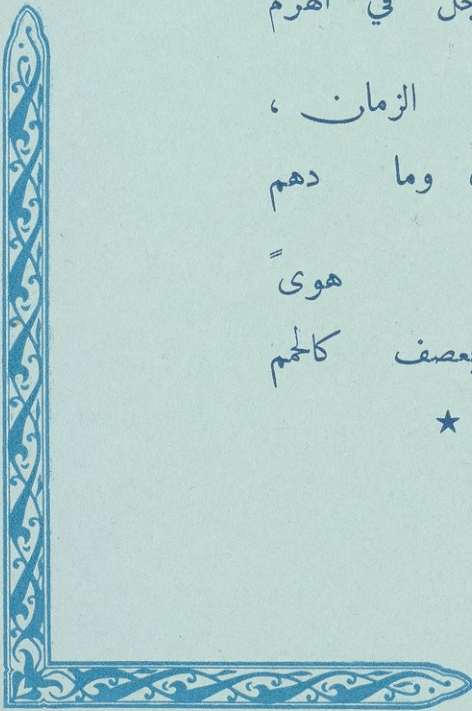 في الهرم
الزمان ،
وما دهم
هوىً
كالحمم
★